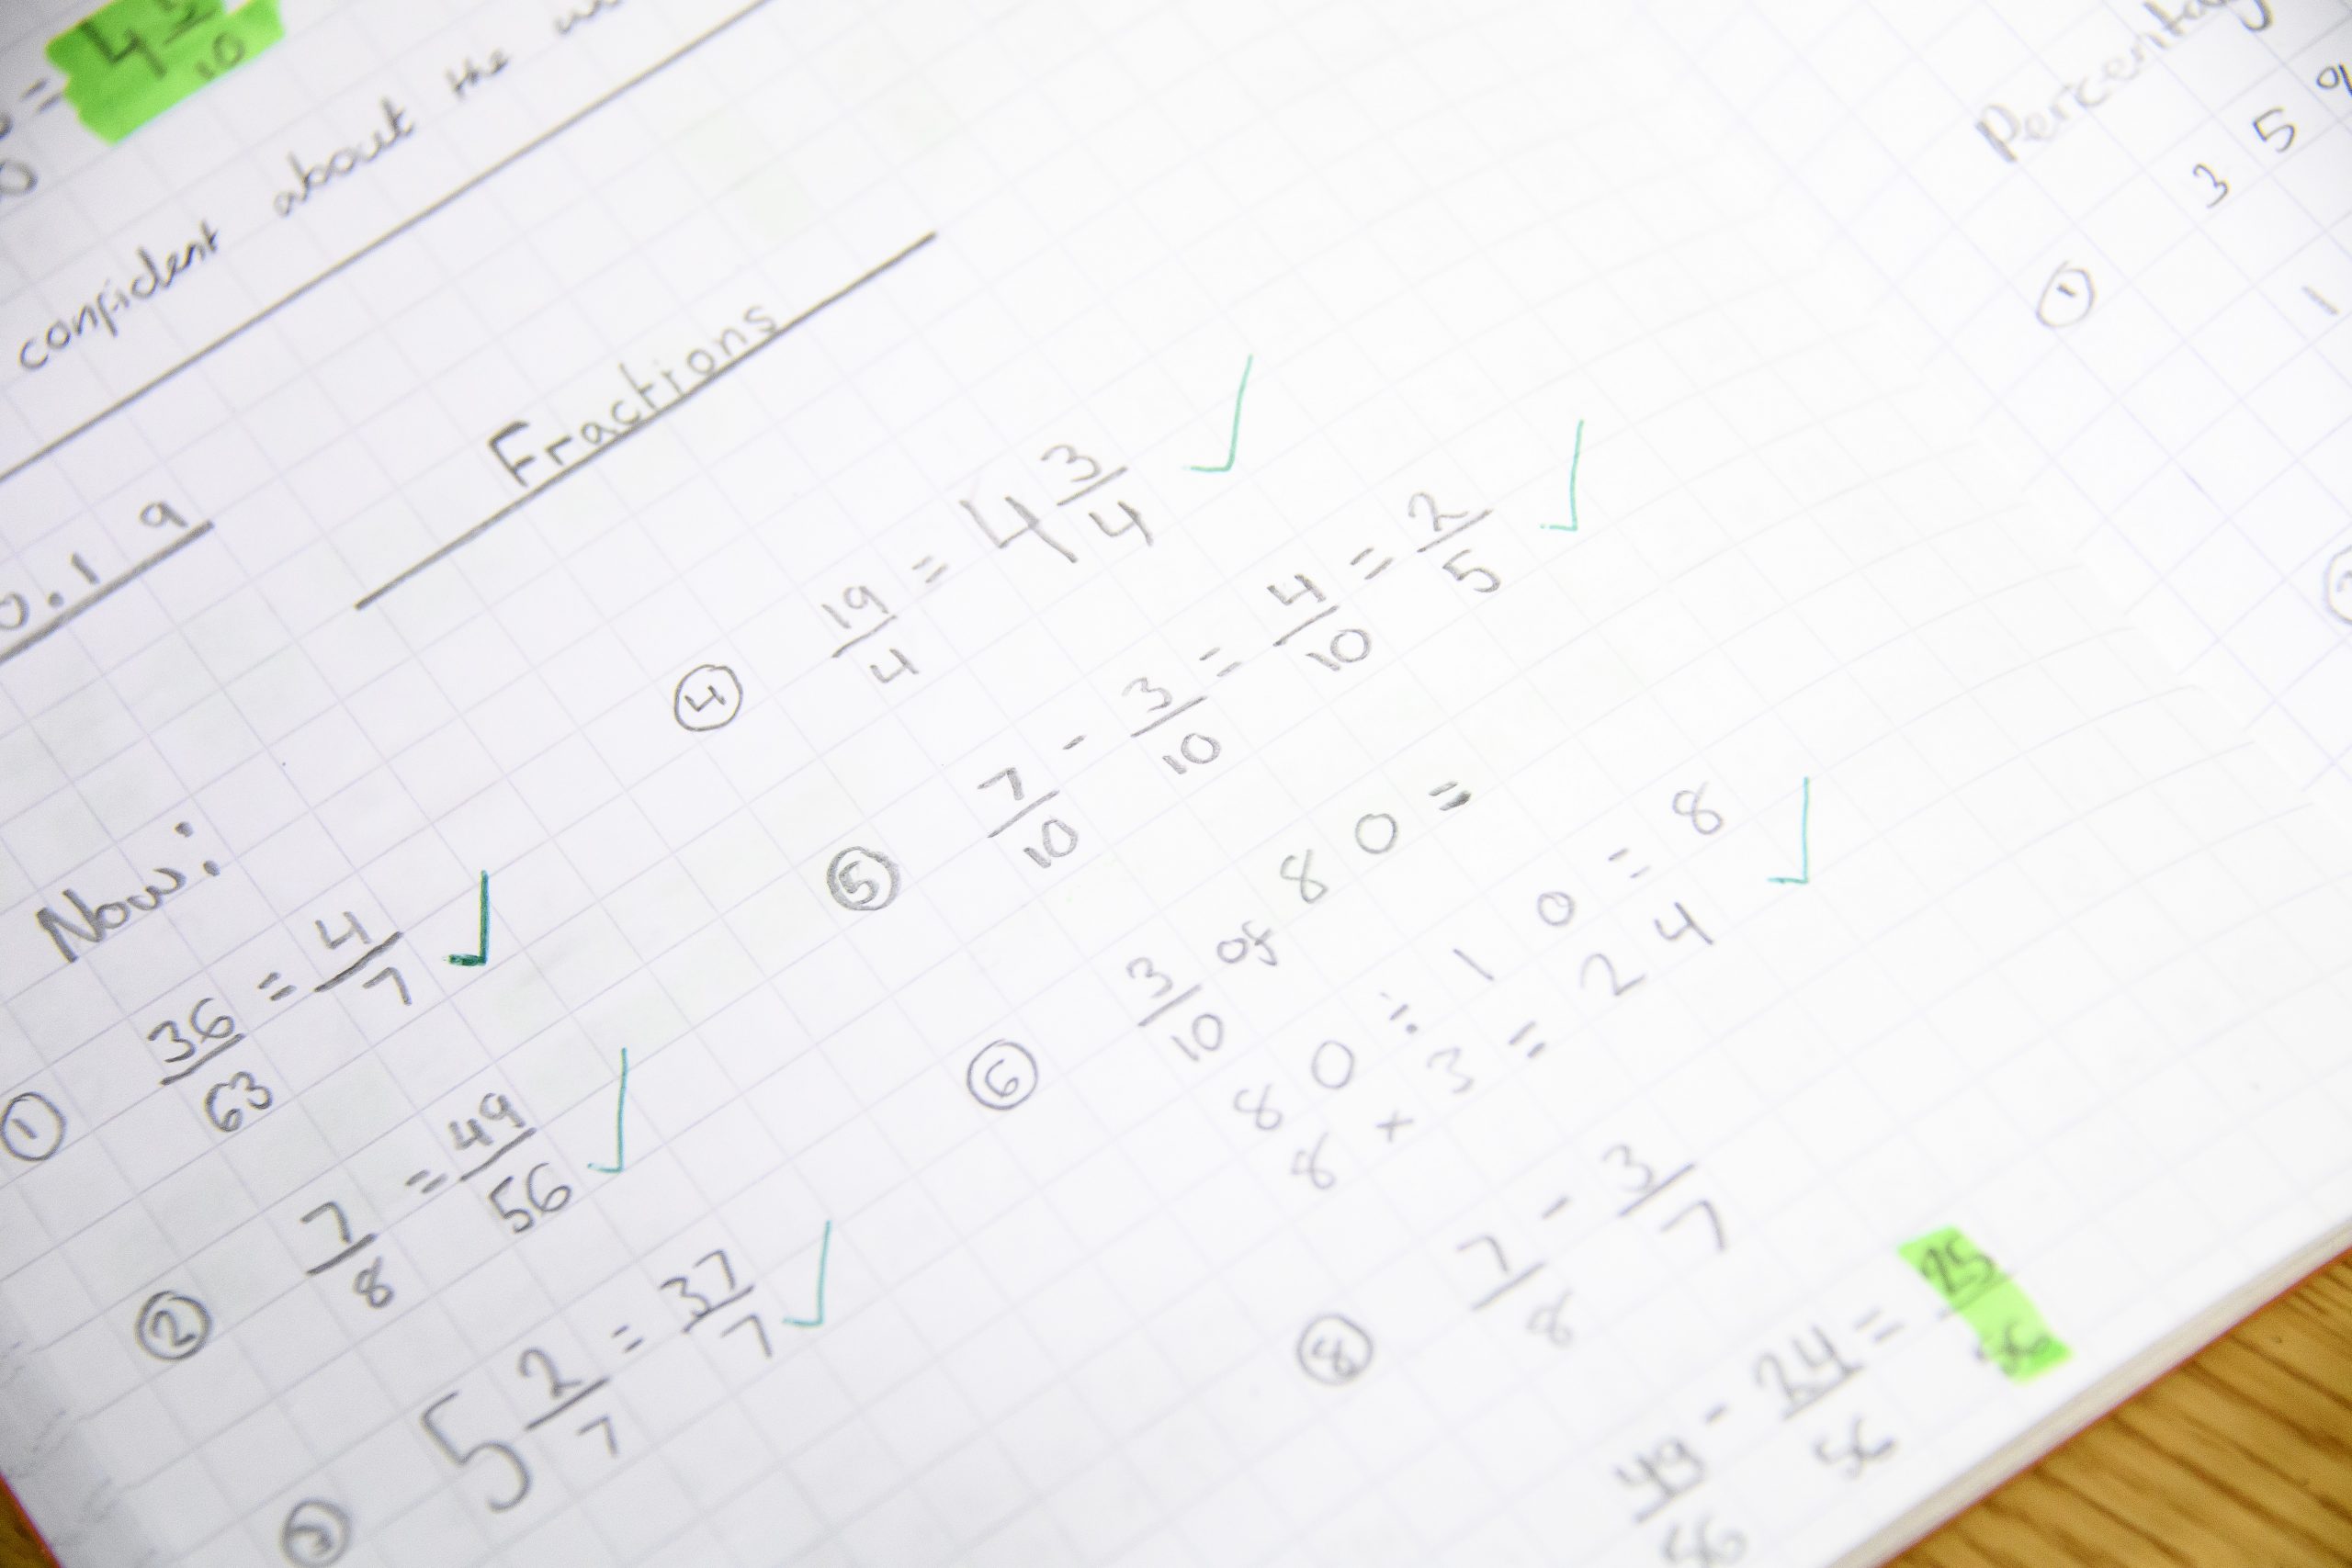 = 4 5/10
confident about the
0.19
Fractions
Now:
① 36/63 = 4/7 ✓
② 7/8 = 49/56 ✓
③ 5 2/7 = 37/7 ✓
④ 19/4 = 4 3/4 ✓
⑤ 7/10 - 3/10 = 4/10 = 2/5 ✓
⑥ 3/10 of 80 =
80 ÷ 10 = 8
8 × 3 = 24 ✓
⑧ 7/8 - 3/7
49/56 - 24/56 = 25/56
35
①
1